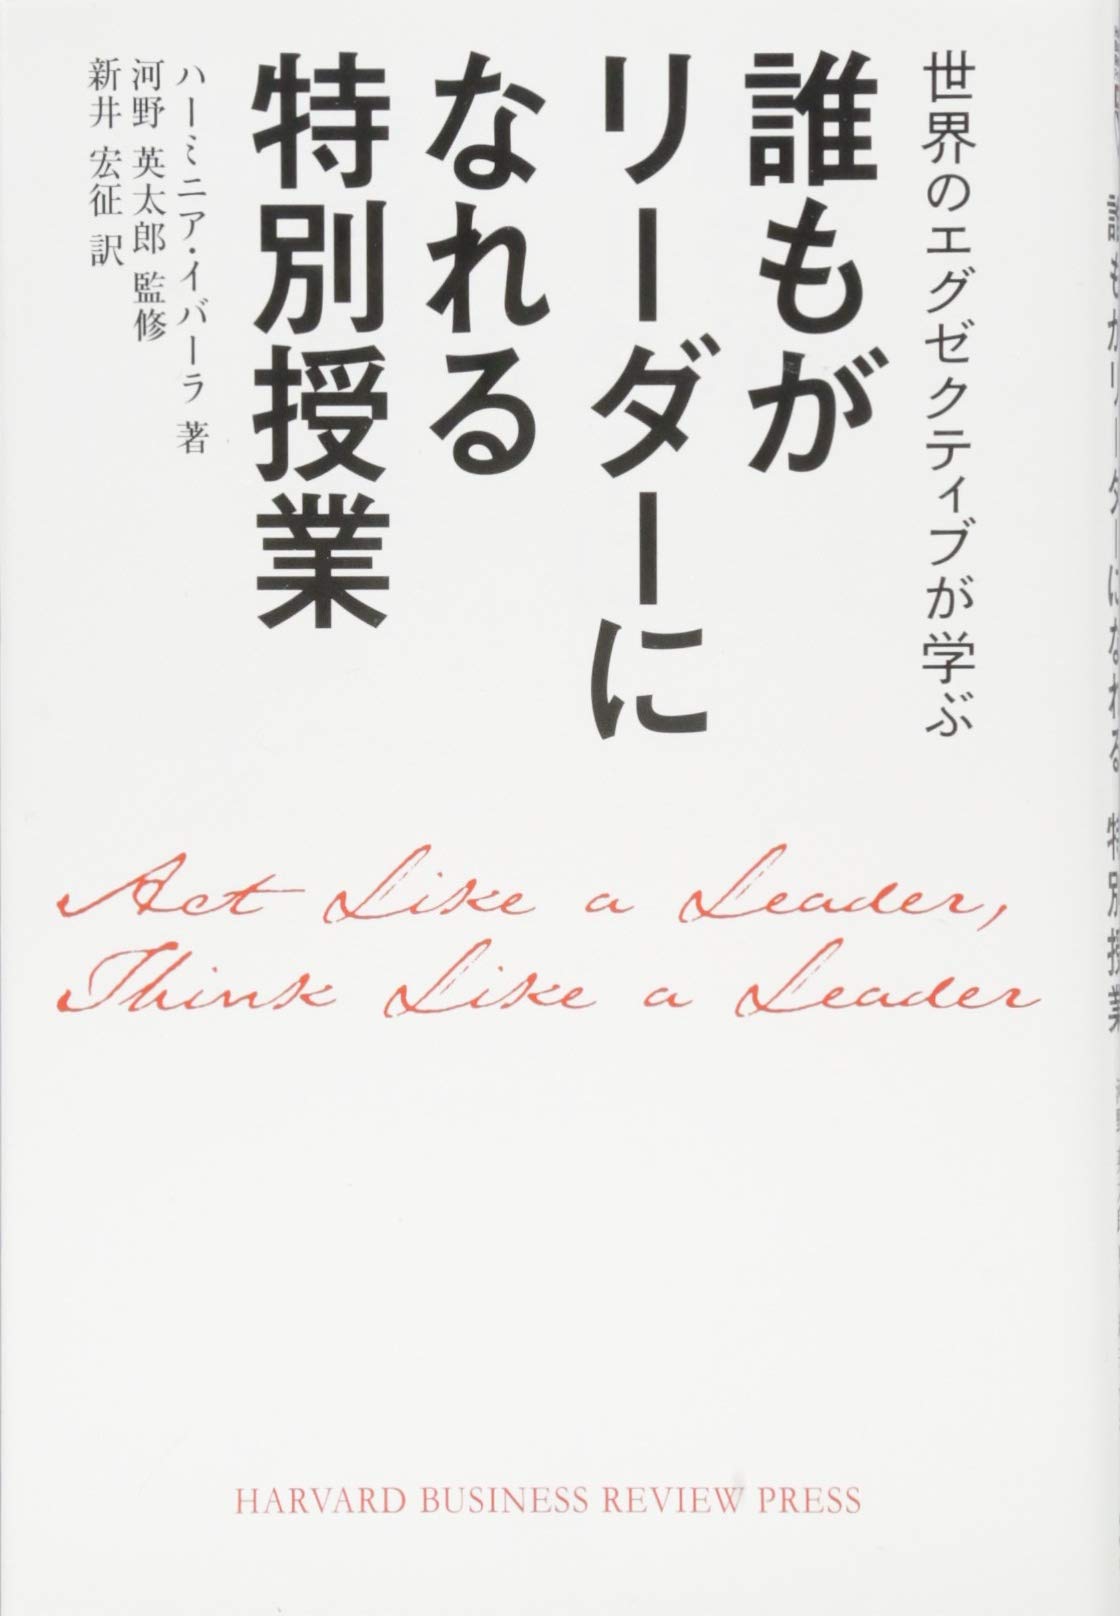 世界のエグゼクティブが学ぶ
誰もが
リーダーに
なれる
特別授業
ハーミニア・イバーラ 著
河野 英太郎 監修
新井 宏征 訳
Act Like a Leader,
Think Like a Leader
HARVARD BUSINESS REVIEW PRESS
誰もがリーダーになれる 特別授業